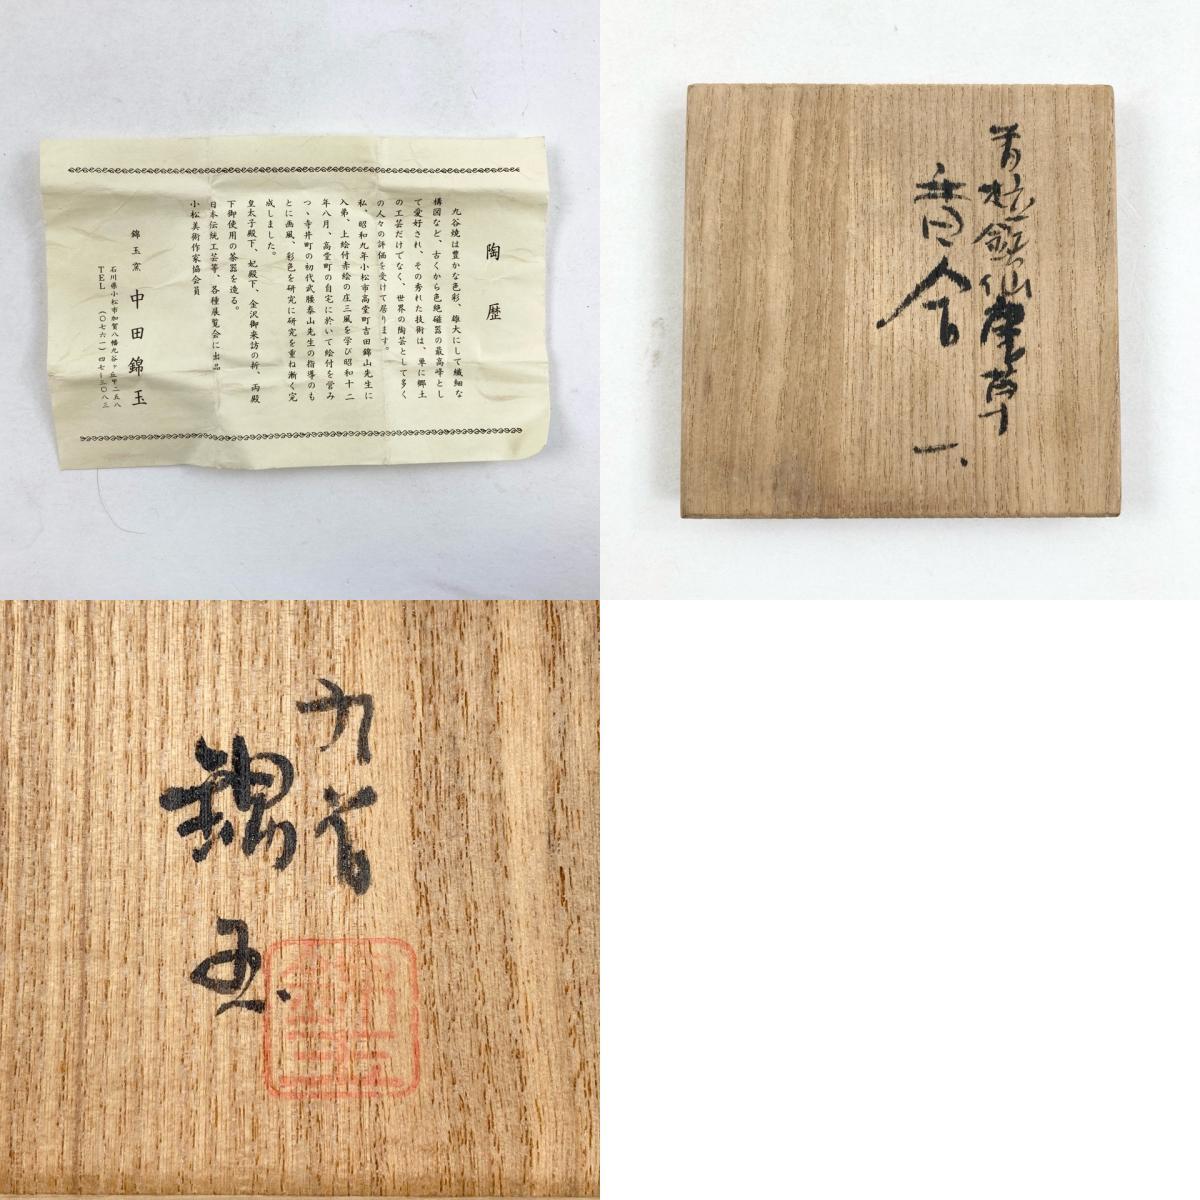 陶歴
九谷焼は豊かな色彩、雄大にして繊細な
構図など、古くから色絵磁器の最高峰とし
て愛好され、その秀れた技術は、単に郷土
の工芸だけでなく、世界の陶芸として多く
の人々の評価を受けて居ります。
私、昭和九年小松市高堂町吉田錦山先生に
入弟、上絵付赤絵の庄三風を学び昭和十二
年八月、高堂町の自宅に於いて絵付を営み
つゝ寺井町の初代武腰泰山先生の指導のも
とに画風、彩色を研究に研究を重ね漸く完
成しました。
皇太子殿下、妃殿下、金沢御来訪の折、両殿
下御使用の茶器を造る。
日本伝統工芸等、各種展覧会に出品
小松美術作家協会員
錦玉窯 中田錦玉
石川県小松市加賀八幡九谷ヶ丘甲二五八
TEL (〇七六一)四七-三〇八三
唐草
香合
一
錦玉